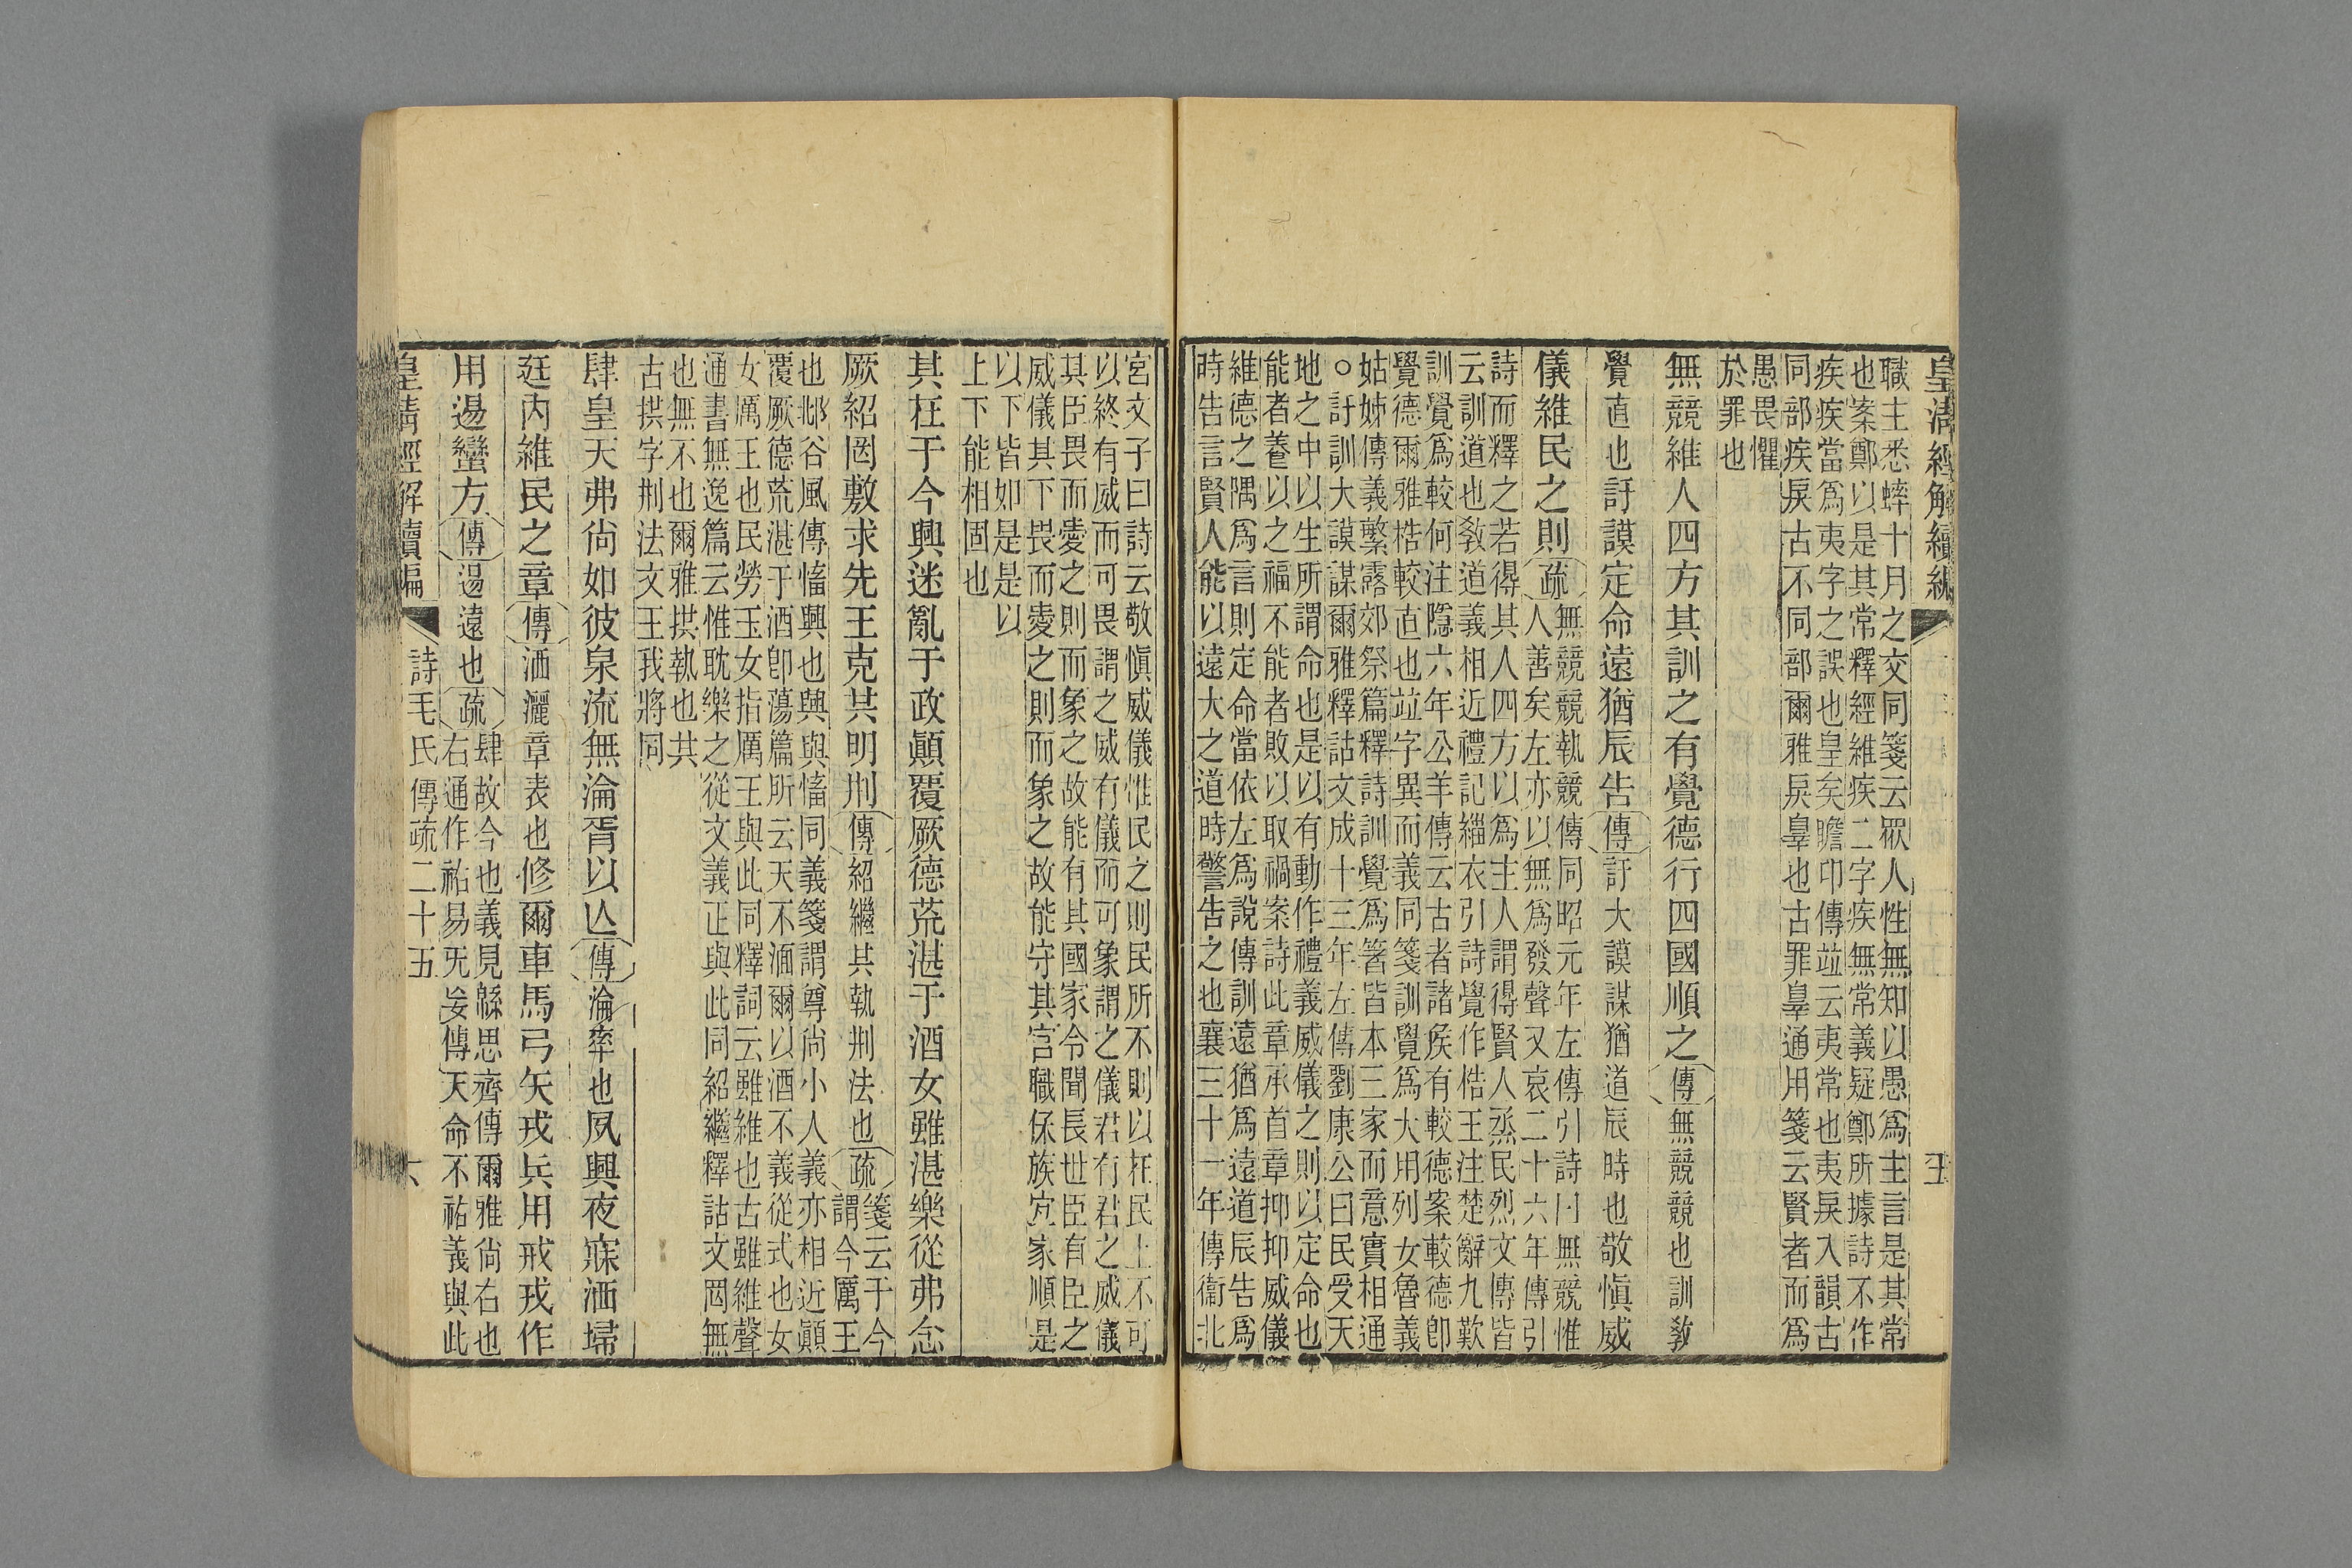 皇清經解續編
職主悉蟀十月之交同箋云眾人性無知以愚為主言是其常
也案鄭以是其常釋經維疾二字疾無常義疑鄭所據詩不作
疾疾當為夷字之誤也皇矣瞻卬傳竝云夷常也夷戾入韻古
同部疾戾古不同部爾雅戾辠也古罪辠通用箋云賢者而為
愚畏懼
於罪也
無競維人四方其訓之有覺德行四國順之傳無競競也訓敎
覺直也訏謨定命遠猶辰告傳訏大謨謀猶道辰時也敬愼威
儀維民之則疏
無競競執競傳同昭元年左傳引詩曰無競惟
人善矣左亦以無為發聲又哀二十六年傳引
詩而釋之若得其人四方以為主人謂得賢人烝民烈文傳皆
云訓道也敎道義相近禮記緇衣引詩覺作梏王注楚辭九歎
訓覺為較何注隱六年公羊傳云古者諸矦有較德案較德卽
覺德爾雅梏較直也竝字異而義同箋訓覺為大用列女魯義
姑姊傳義繫露郊祭篇釋詩訓覺為箸皆本三家而意實相通
○訏訓大謨謀爾雅釋詁文成十三年左傳劉康公曰民受天
地之中以生所謂命也是以有動作禮義威儀之則以定命也
能者養以之福不能者敗以取禍案詩此章承首章抑抑威儀
維德之隅為言則定命當依左為說傳訓遠猶為遠道辰告為
時告言賢人能以遠大之道時警告之也襄三十一年傳衞北
宮文子曰詩云敬愼威儀惟民之則民所不則以在民上不可
以終有威而可畏謂之威有儀而可象謂之儀君有君之威儀
其臣畏而愛之則而象之故能有其國家令聞長世臣有臣之
威儀其下畏而愛之則而象之故能守其官職保族宜家順是
以下皆如是是以
上下能相固也
其在于今興迷亂于政顚覆厥德荒湛于酒女雖湛樂從弗念
厥紹罔敷求先王克共明刑傳紹繼共執刑法也疏
箋云于今
謂今厲王
也邶谷風傳慉興也興與慉同義箋謂尊尚小人義亦相近顚
覆厥德荒湛于酒卽蕩篇所云天不湎爾以酒不義從式也女
女厲王也民勞玉女指厲王與此同釋詞云雖維也古雖維聲
通書無逸篇云惟耽樂之從文義正與此同紹繼釋詁文罔無
也無不也爾雅拱執也共
古拱字刑法文王我將同
肆皇天弗尙如彼泉流無淪胥以亾傳淪率也夙興夜寐洒埽
廷內維民之章傳洒灑章表也修爾車馬弓矢戎兵用戒戎作
用逷蠻方傳逷遠也疏
肆故今也義見緜思齊傳爾雅尙右也
右通作祐易旡妄傳天命不祐義與此
皇清經解續編
詩毛氏傳疏二十五
六